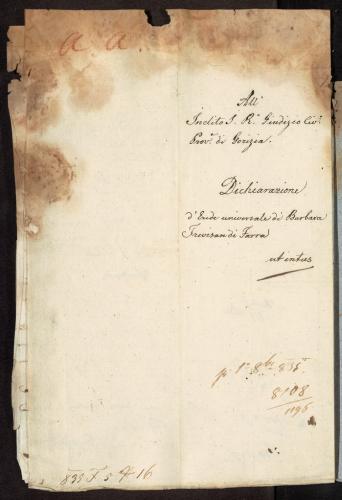 a. a.
All'
Inclito I. R. Giudizio Civ.
Prov. di Gorizia.
Dichiarazione
d'Erede universale di Barbara
Trevisan di Farra
ut intus
pr 1a 8bre 835
8108
1196
835 F 5 16